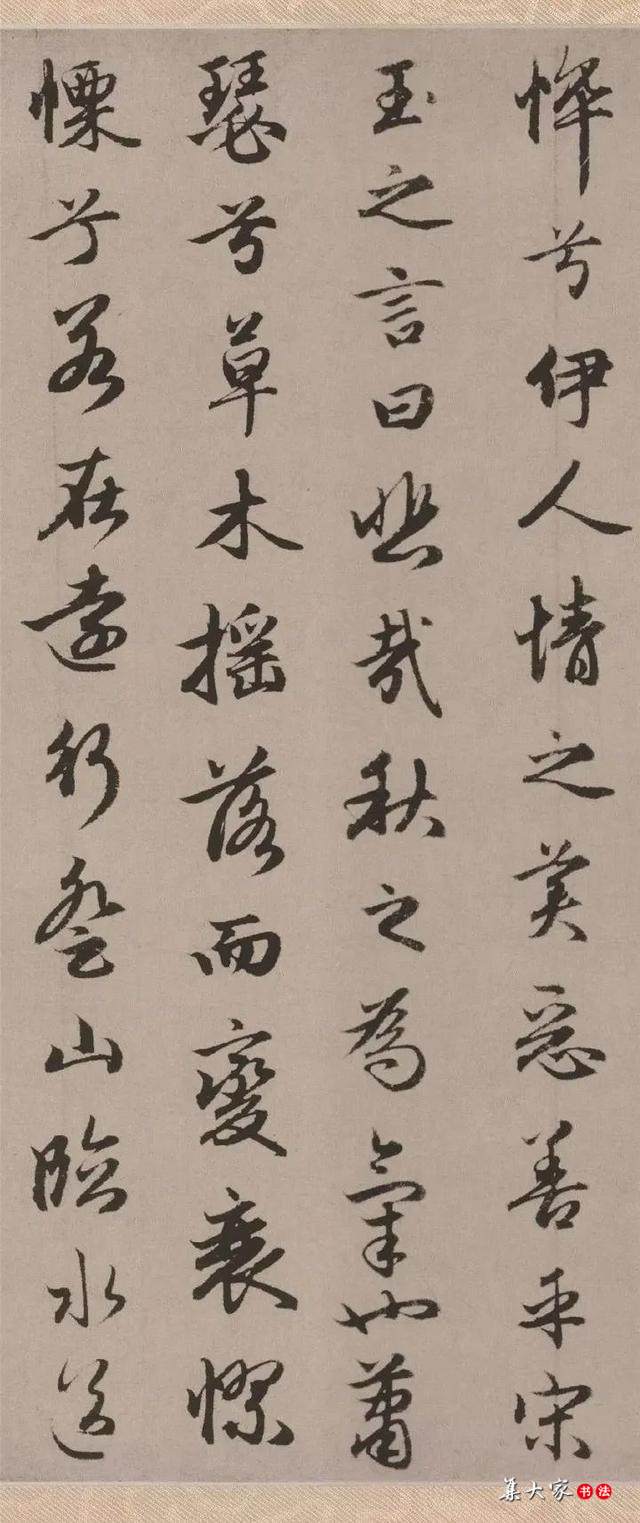 悴兮伊人情之美惡善乎宋
玉之言曰悲哉秋之為氣也蕭
瑟兮草木搖落而變衰憭
慄兮若在遠行登山臨水送
集大家 书法